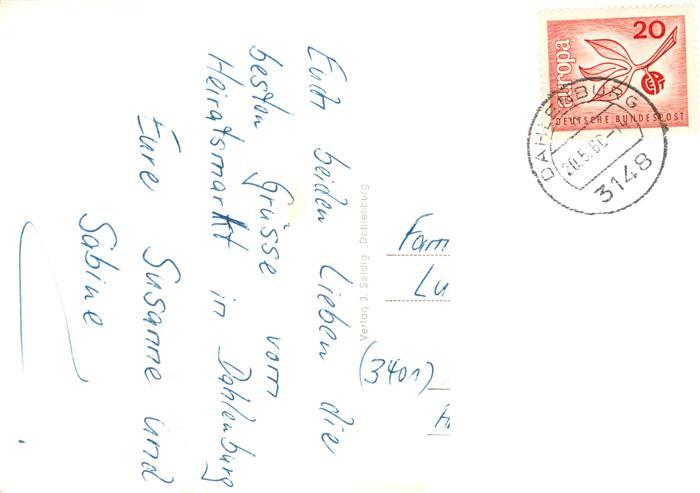 Euch beiden Lieben die
besten Grüsse vom
Heiratsmarkt in Dahlenburg
Eure Susanne und
Sabine
Verlag J. Seldig, Dahlenburg
Fam
Lu
(3401)
20
europa
CEPT
DEUTSCHE BUNDESPOST
DAHLENBURG
20.5.66
3148